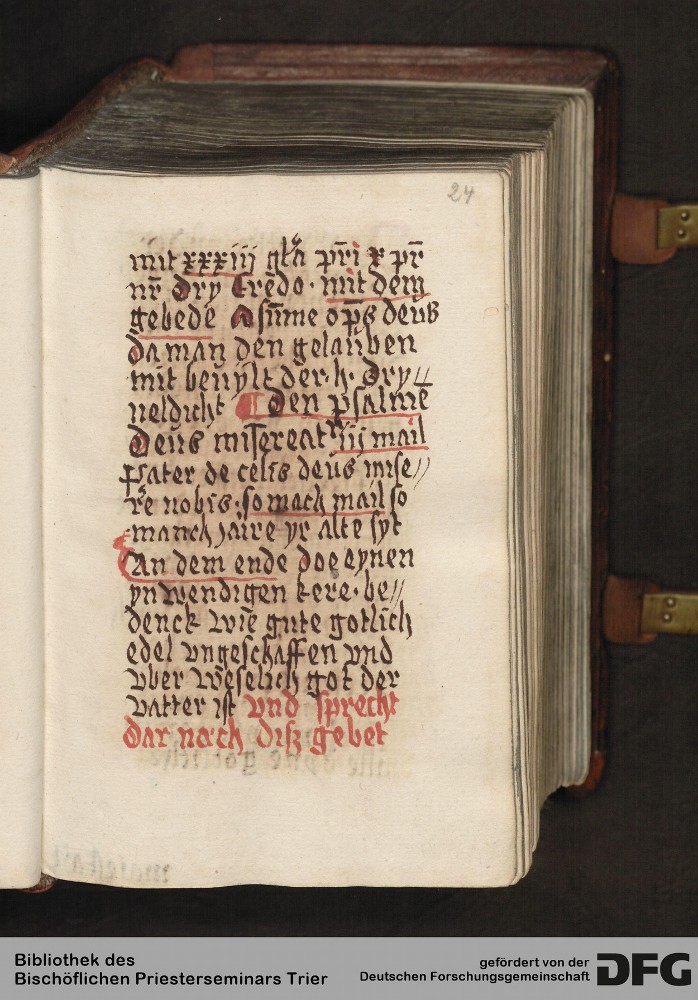 24
mit xxxiij gl̄a pr̄i x pr̄
nr̄ Dry Crēdo · mit dem
gebede Asūme op̄s deus
da man den gelauben
mit beuylt der · h · Dry //
ueldicht Den psalmē
Deus misereatʳ iij mail
Pater de celis deus mise //
re nobis · so mach mail so
manch jaire yr alte syt
An dem ende doe eynen
ynwendigen kere · be //
denck wie gute gotlich
edel vngeschaffen vnd
vber weselich got der
vatter ist vnd sprecht
dar nach disz gebet
Bibliothek des
Bischöflichen Priesterseminars Trier
gefördert von der
Deutschen Forschungsgemeinschaft DFG